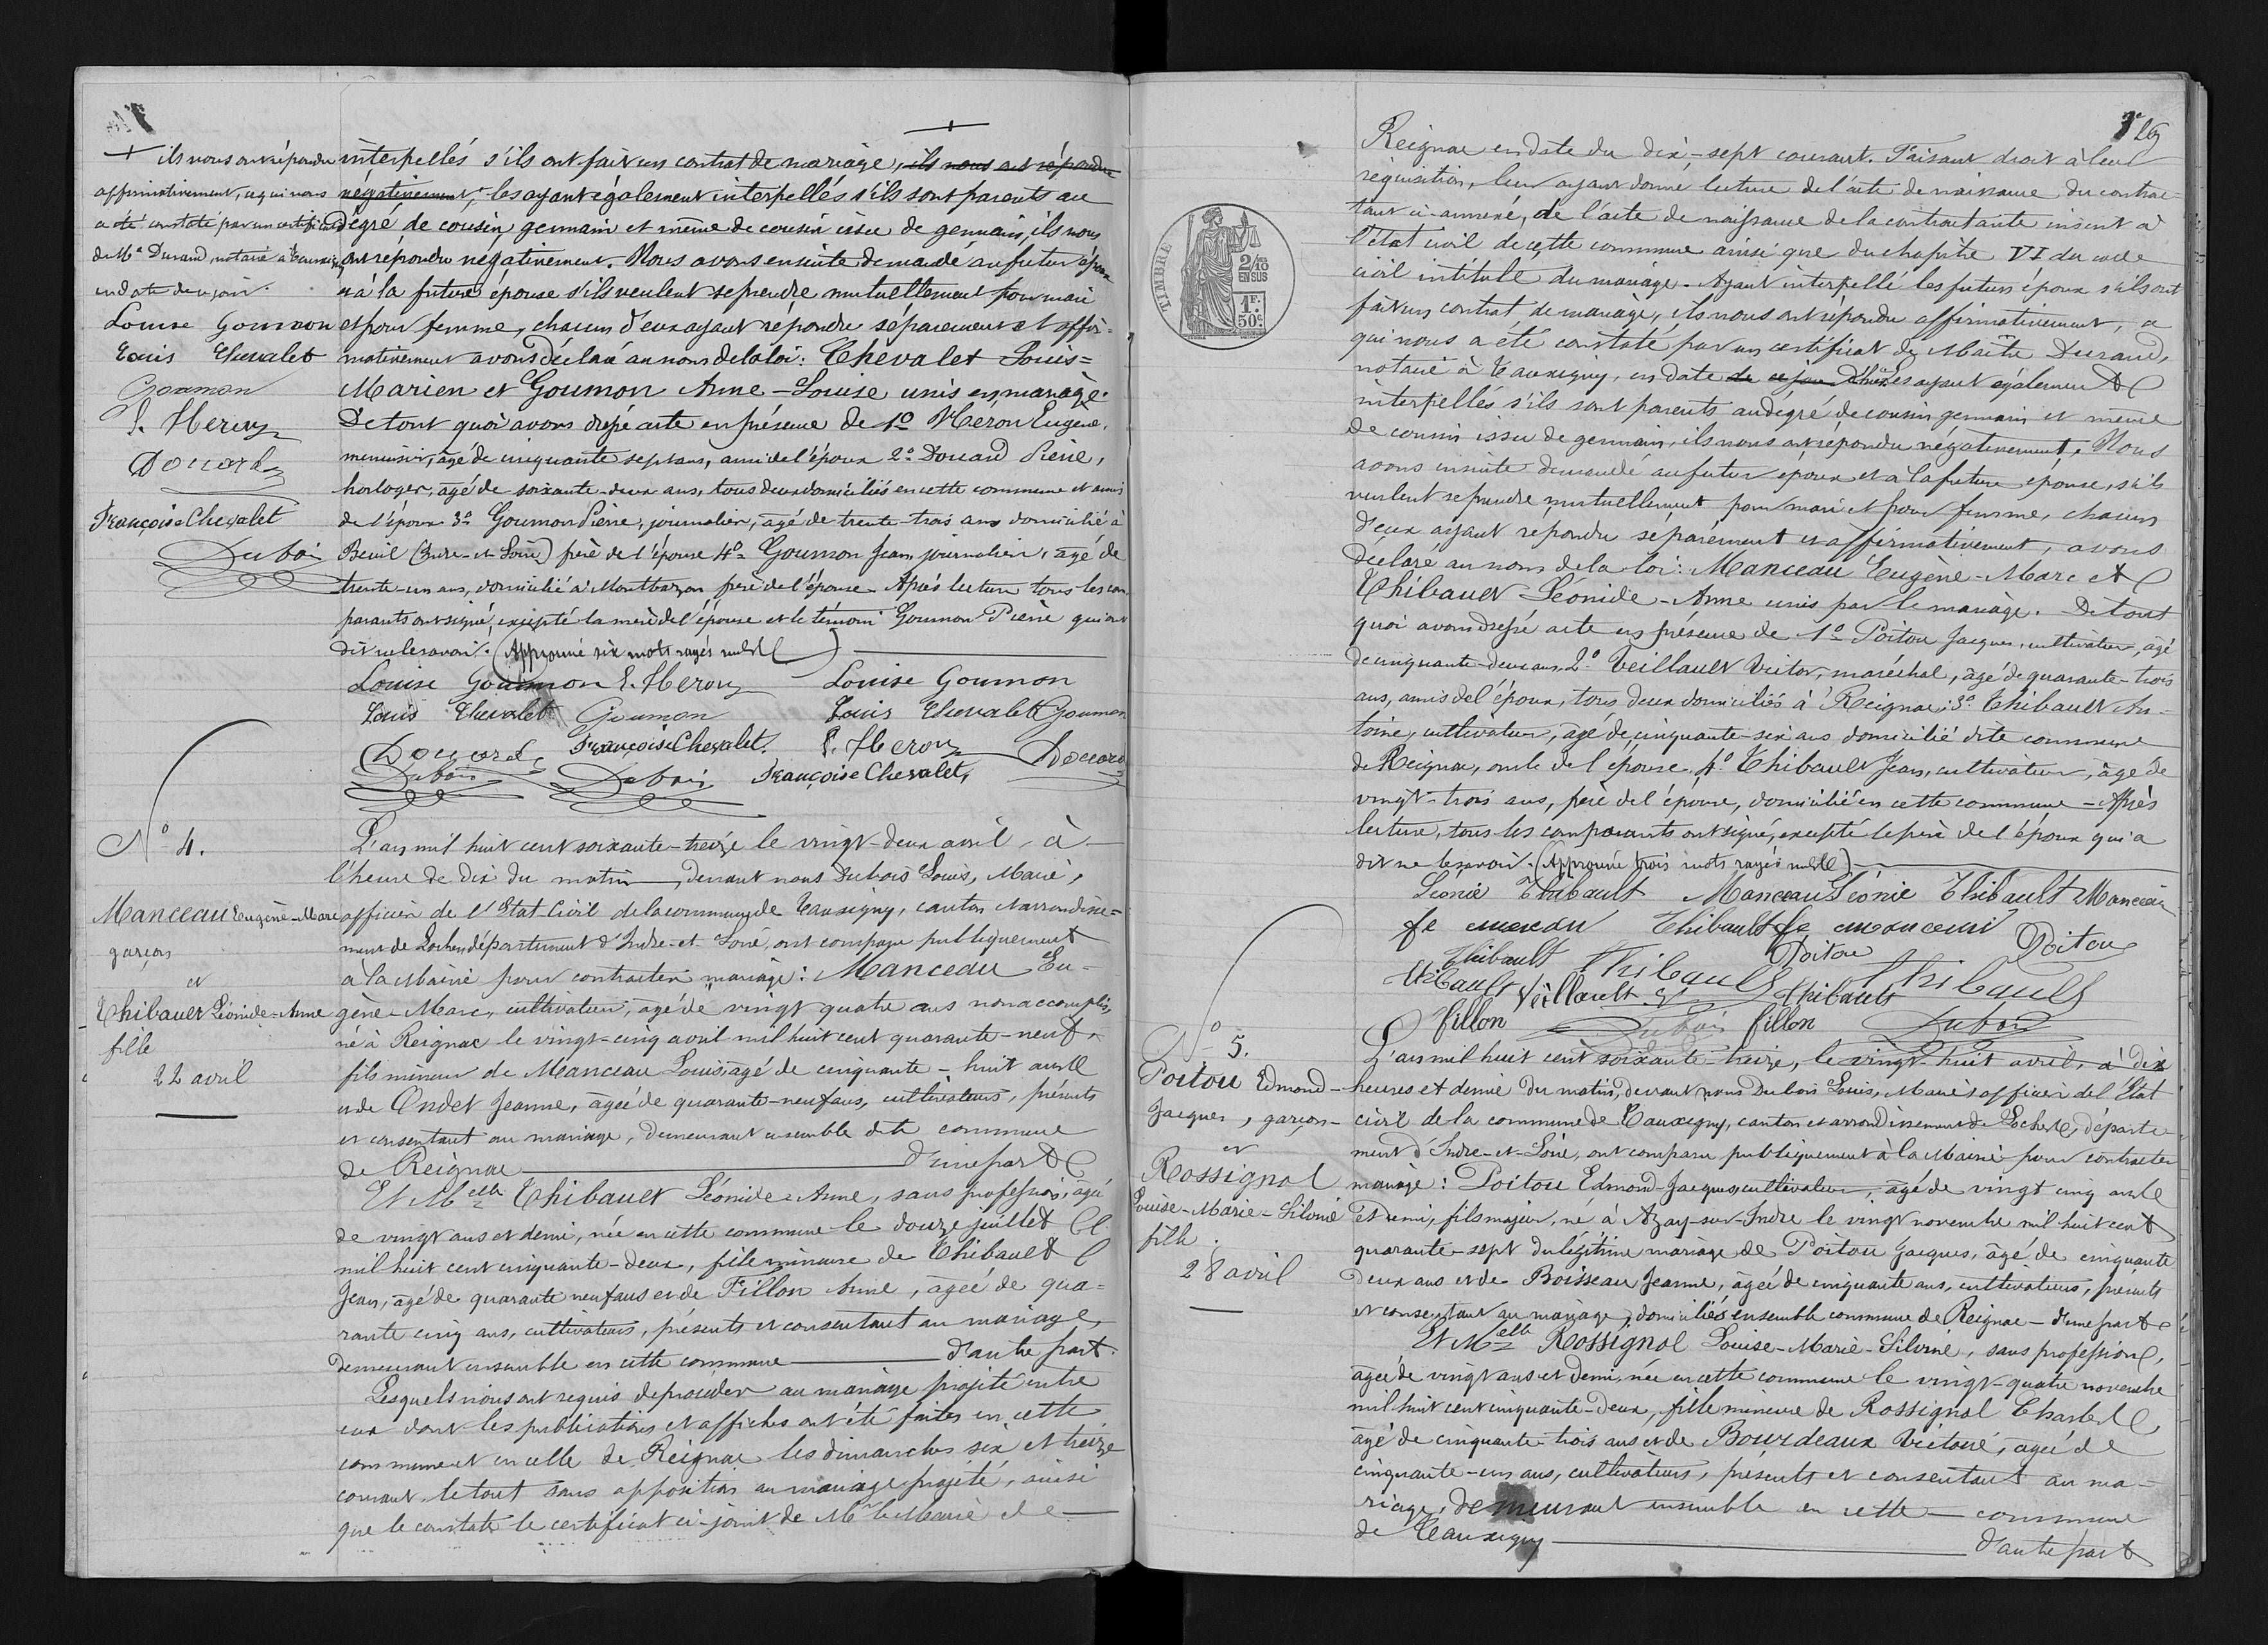 + ils nous ont répondu
affirmativement, ce qui nous
a été constaté par un certificat
de Me Durand, notaire à Tauxigny
en date de ce jour.
Louise Goumon
Louis Chevalet
Goumon
E. Heron
Douard
Françoise Chevalet
Dubois
interpellés s'ils ont fait un contrat de mariage, ils nous ont répondu
négativement, les ayant également interpellés s'ils sont parents au
dégré de cousin germain et même de cousin issu de germain, ils nous
ont répondu négativement. Nous avons ensuite demandé au futur époux
et à la future épouse s'ils veulent se prendre mutuellement pour mari
et pour femme, chacun d'eux ayant répondu séparément et affir=
mativement avons déclaré au nom de la loi : Chevalet Louis=
Marien et Goumon Anne-Louise unis en mariage.
De tout quoi avons dressé acte en présence de 1o Heron Eugène,
menuisier, âgé de cinquante sept ans, ami de l'époux 2o Douard Pierre,
horloger, âgé de soixante-deux ans, tous deux domiciliés en cette commune et amis
de l'époux 3o Goumon Pierre, journalier, âgé de trente-trois ans domicilié à
Beuil (Indre-et-Loire) frère de l'épouse 4o Goumon Jean, journalier, âgé de
trente-un ans, domicilié à Montbazon frère de l'épouse. Après lecture tous les com
parants ont signé, excepté la mère de l'épouse et le témoin Goumon Pierre qui ont
dit ne le savoir. (Approuvé six mots rayés nuls)
Louise Goumon E. Heron Louise Goumon
Louis Chevalet Goumon Louis Chevalet Goumon
Douard Françoise Chevalet. E. Heron Douard
Dubois Dubois Françoise Chevalet
No 4.
Manceau Eugène-Marc
garçon
et
Thibault Léonide-Anne
fille
22 avril
L'an mil huit cent soixante-treize le vingt-deux avril, à
l'heure de dix du matin, devant nous Dubois Louis, Maire,
officier de l'Etat Civil de la commune de Tauxigny, canton et arrondisse=
ment de Loches département d'Indre-et-Loire, ont comparu publiquement
à la Mairie pour contracter mariage : Manceau Eu-
gène-Marc, cultivateur, âgé de vingt quatre ans non accomplis,
né à Reignac le vingt-cinq avril mil huit cent quarante-neuf,
fils mineur de Manceau Louis âgé de cinquante-huit ans
et de Ondet Jeanne, âgée de quarante-neuf ans, cultivateurs, présents
et consentant au mariage, demeurant ensemble dite commune
de Reignac d'une part
Et Melle Thibault Léonide-Anne, sans profession, âgée
de vingt ans et demi, née en cette commune le douze juillet
mil huit cent cinquante-deux, fille mineure de Thibault
Jean, âgé de quarante neuf ans et de Fillon Anne, âgée de qua=
rante cinq ans, cultivateurs, présents et consentant au mariage,
demeurant ensemble en cette commune d'autre part.
Lesquels nous ont requis de procéder au mariage projeté entre
eux dont les publications et affiches ont été faites en cette
commune et en celle de Reignac les dimanches six et treize
courant, le tout sans opposition au mariage projeté, ainsi
que le constate le certificat ci-joint de Mr le Maire de
Reignac en date du dix-sept courant. Faisant droit à leur
réquisition, leur ayant donné lecture de l'acte de naissance du contrac-
tant ci-annexé, de l'acte de naissance de la contractante inscrit à
l'état civil de cette commune ainsi que du chapitre VI du code
civil intitulé du mariage. Ayant interpellé les futurs époux s'ils ont
fait un contrat de mariage, ils nous ont répondu affirmativement, ce
qui nous a été constaté par un certificat de Maître Durand,
notaire à Tauxigny, en date de ce jour d'hier. Les ayant également
interpellés s'ils sont parents au dégré de cousin germain et même
de cousin issu de germain, ils nous ont répondu négativement. Nous
avons ensuite demandé au futur époux et à la future épouse, s'ils
veulent se prendre mutuellement pour mari et pour femme, chacun
d'eux ayant répondu séparément et affirmativement, avons
déclaré au nom de la loi : Manceau Eugène-Marc et
Thibault Léonide-Anne unis par le mariage. De tout
quoi avons dressé acte en présence de 1o Poitou Jacques, cultivateur, âgé
de cinquante-deux ans, 2o Veillault Victor, maréchal, âgé de quarante-trois
ans, amis de l'époux, tous deux domiciliés à Reignac, 3o Thibault An-
toine, cultivateur, âgé de cinquante-six ans domicilié dite commune
de Reignac, oncle de l'épouse, 4o Thibault Jean, cultivateur, âgé de
vingt-trois ans, frère de l'épouse, domicilié en cette commune - Après
lecture, tous les comparants ont signé, excepté le père de l'époux qui a
dit ne le savoir. (Approuvé trois mots rayés nuls)
Léonie Thibault Manceau Léonie Thibault Manceau
fe manceau Thibault fe manceau
Thibault Thibault Poitou Poitou
Thibault Veillault Thibault Thibault
fillon Dubois fillon Dubois
TIMBRE
2/10 EN SUS
1F. 50c
No 5.
Poitou Edmond-
Jacques, garçon-
et
Rossignol
Louise-Marie-Silvine
fille.
28 avril
L'an mil huit cent soixante-treize, le vingt-huit avril, à dix
heures et demie du matin, devant nous Dubois Louis, Maire officier de l'Etat
civil de la commune de Tauxigny, canton et arrondissement de Loches, départe-
ment d'Indre-et-Loire, ont comparu publiquement à la Mairie pour contracter
mariage : Poitou Edmond-Jacques, cultivateur, âgé de vingt cinq ans
et demi, fils majeur, né à Azay-sur-Indre le vingt novembre mil huit cent
quarante-sept du légitime mariage de Poitou Jacques, âgé de cinquante
deux ans et de Boisseau Jeanne, âgée de cinquante ans, cultivateurs, présents
et consentant au mariage, domiciliés ensemble commune de Reignac - d'une part
Et Melle Rossignol Louise-Marie-Silvine, sans profession,
âgée de vingt ans et demi, née en cette commune le vingt-quatre novembre
mil huit cent cinquante-deux, fille mineure de Rossignol Charles,
âgé de cinquante trois ans et de Bourdeaux Victoire, âgée de
cinquante-un ans, cultivateurs, présents et consentant au ma-
riage, demeurant ensemble en cette commune
de Tauxigny d'autre part